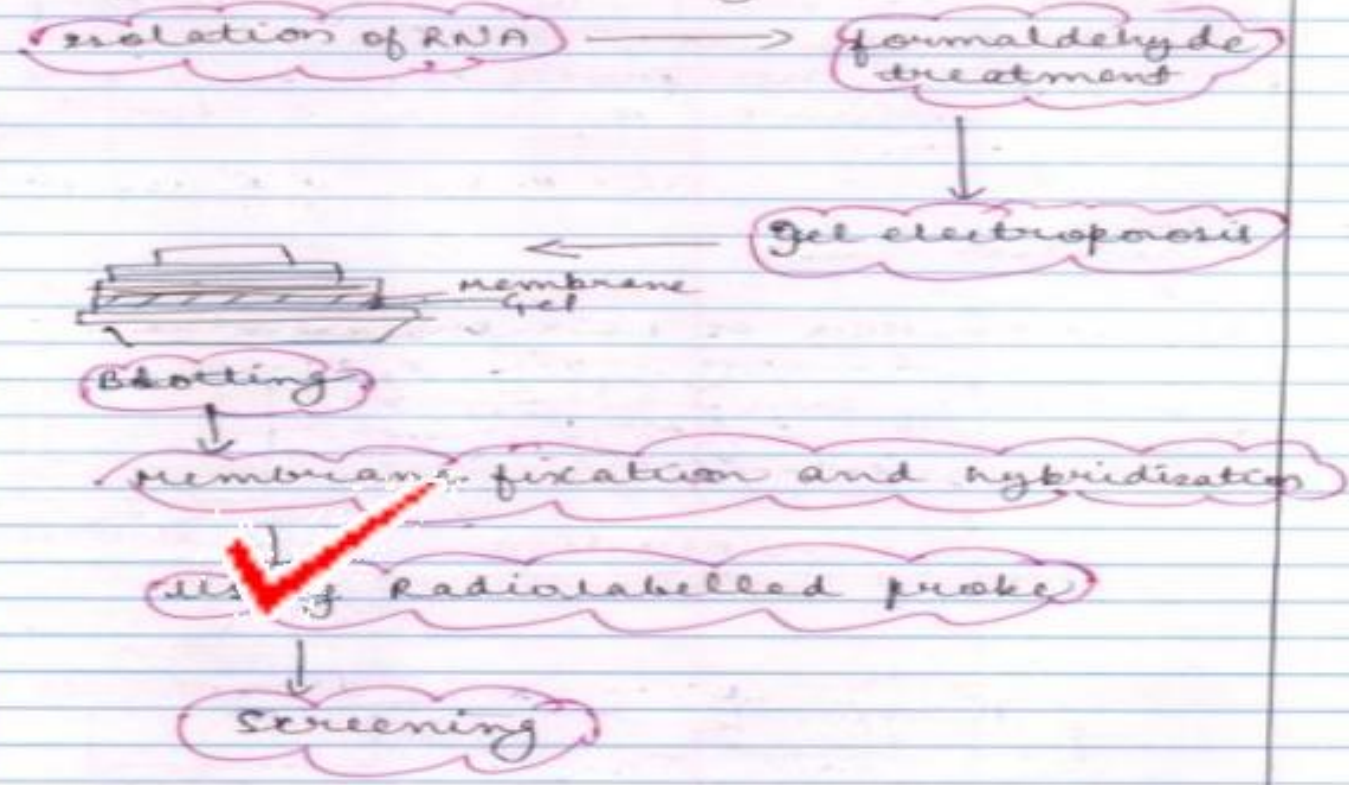 isolation of RNA
formaldehyde
treatment
Gel electroporosis
Membrane
Gel
Blotting
Membrane fixation and hybridization
using Radiolabelled probe
Screening